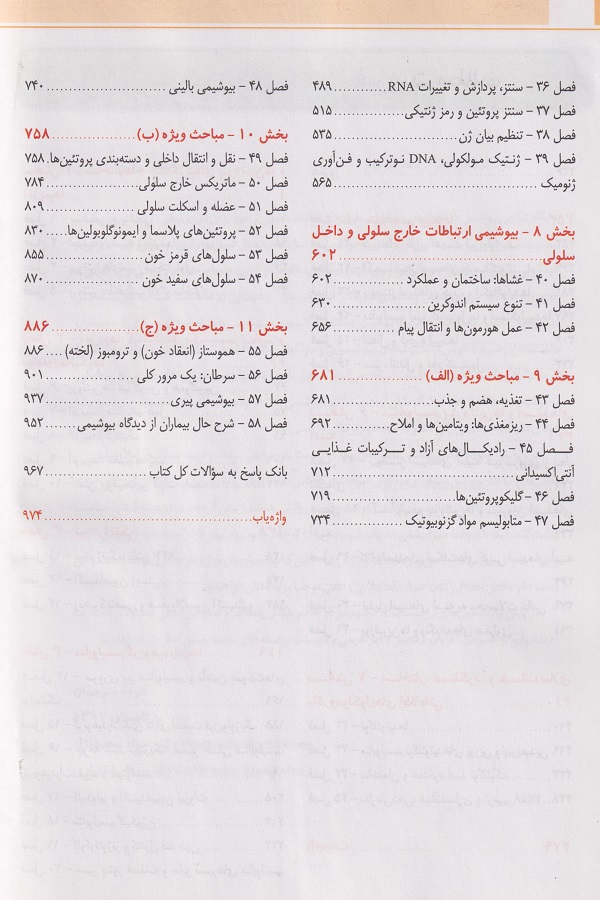 فصل ۳۶ - سنتز، پردازش و تغییرات RNA............۴۸۹
فصل ۳۷ - سنتز پروتئین و رمز ژنتیکی..............۵۱۵
فصل ۳۸ - تنظیم بیان ژن..........................۵۳۵
فصل ۳۹ - ژنـتیک مـولکولی، DNA نـوترکیب و فـن‌آوری
ژنومیک........................................۵۶۵
بخش ۸ - بیوشیمی ارتباطات خارج سلولی و داخـل
سلولی........................................۶۰۲
فصل ۴۰ - غشاها: ساختمان و عملکرد..............۶۰۲
فصل ۴۱ - تنوع سیستم اندوکرین..................۶۳۰
فصل ۴۲ - عمل هورمون‌ها و انتقال پیام............۶۵۶
بخش ۹ - مباحث ویژه (الف)....................۶۸۱
فصل ۴۳ - تغذیه، هضم و جذب....................۶۸۱
فصل ۴۴ - ریزمغذی‌ها: ویتامین‌ها و املاح............۶۹۲
فــصل ۴۵ - رادیکــال‌های آزاد و تــرکیبات غـذایی
آنتی‌اکسیدانی...................................۷۱۲
فصل ۴۶ - گلیکوپروتئین‌ها........................۷۱۹
فصل ۴۷ - متابولیسم مواد گزنوبیوتیک..............۷۳۴
فصل ۴۸ - بیوشیمی بالینی........................۷۴۰
بخش ۱۰ - مباحث ویژه (ب)....................۷۵۸
فصل ۴۹ - نقل و انتقال داخلی و دسته‌بندی پروتئین‌ها.۷۵۸
فصل ۵۰ - ماتریکس خارج سلولی..................۷۸۴
فصل ۵۱ - عضله و اسکلت سلولی..................۸۰۹
فصل ۵۲ - پروتئین‌های پلاسما و ایمونوگلوبولین‌ها.....۸۳۰
فصل ۵۳ - سلول‌های قرمز خون....................۸۵۵
فصل ۵۴ - سلول‌های سفید خون....................۸۷۰
بخش ۱۱ - مباحث ویژه (ج)....................۸۸۶
فصل ۵۵ - هموستاز (انعقاد خون) و ترومبوز (لخته)....۸۸۶
فصل ۵۶ - سرطان: یک مرور کلی..................۹۰۱
فصل ۵۷ - بیوشیمی پیری........................۹۳۷
فصل ۵۸ - شرح حال بیماران از دیدگاه بیوشیمی......۹۵۲
بانک پاسخ به سؤالات کل کتاب....................۹۶۷
واژه‌یاب........................................۹۷۴